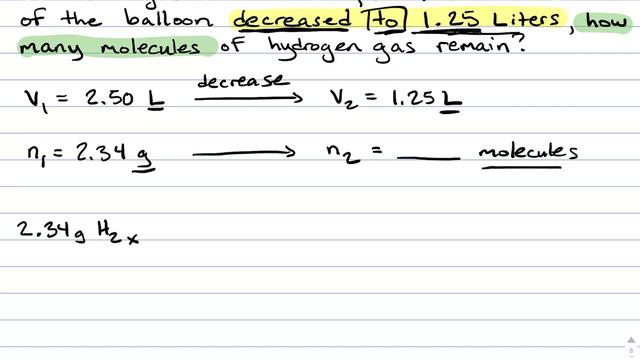 of the balloon decreased to 1.25 Liters, how
many molecules of hydrogen gas remain?
decrease
V₁ = 2.50 L ⟶ V₂ = 1.25 L
n₁ = 2.34 g ⟶ n₂ = ____ molecules
2.34 g H₂ ×